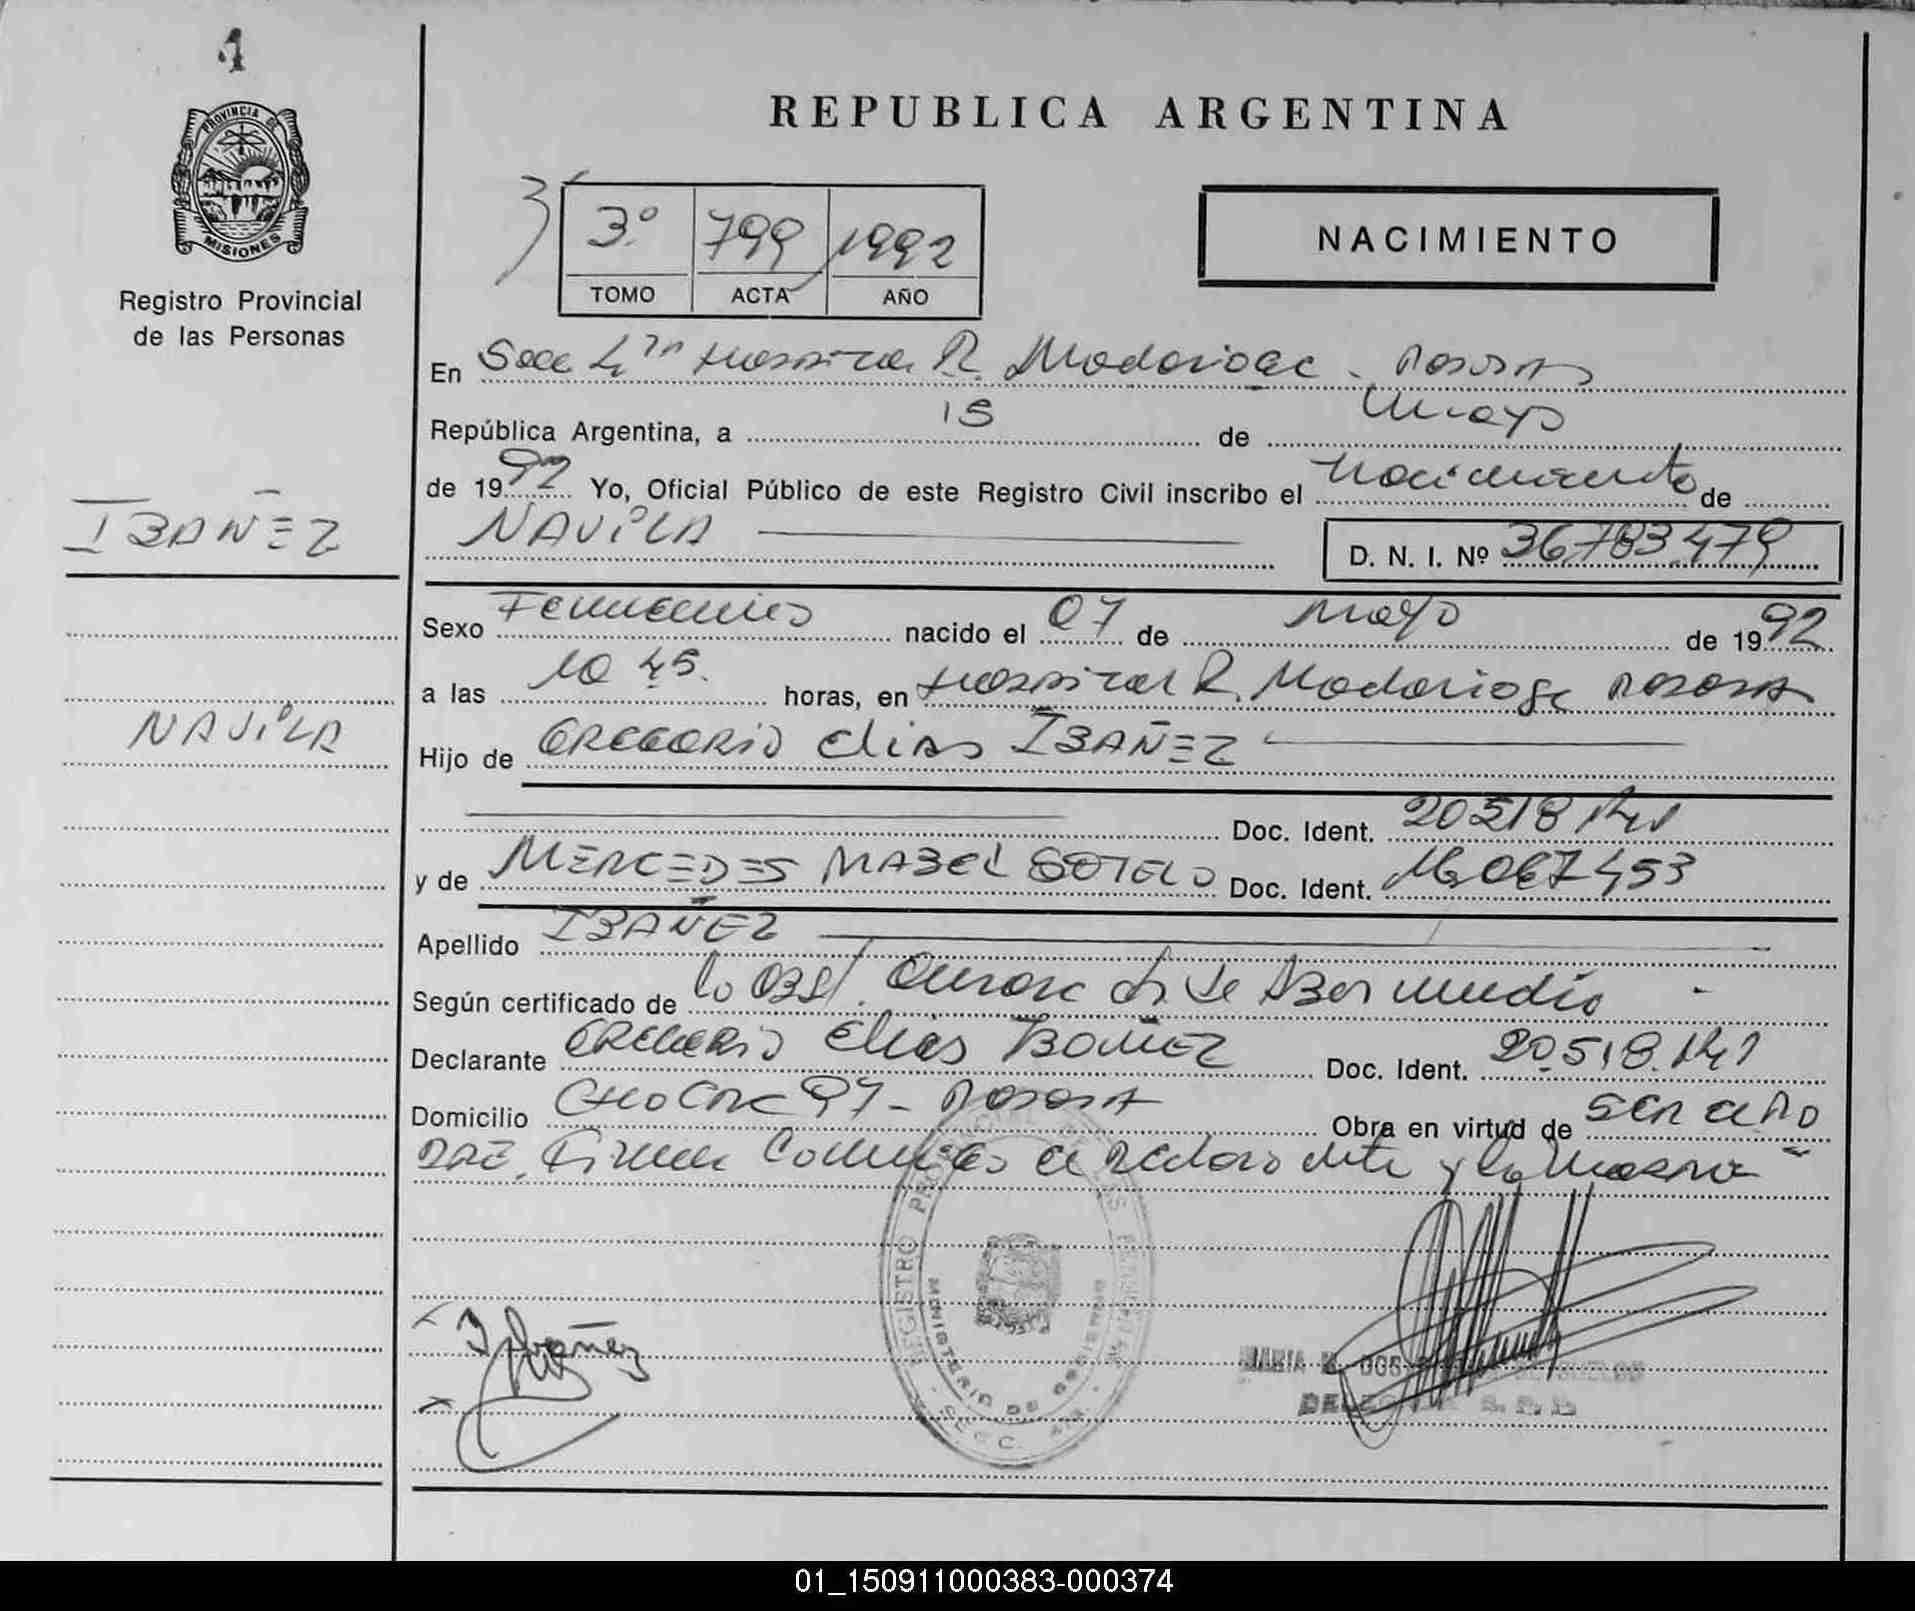 1
PROVINCIA DE
MISIONES
Registro Provincial
de las Personas
IBAÑEZ
NAVILA
REPUBLICA ARGENTINA
3º 799 1992
TOMO ACTA AÑO
NACIMIENTO
En Secc 4ta Hospital R. Madariaga - Posadas
República Argentina, a 15 de Mayo
de 1992 Yo, Oficial Público de este Registro Civil inscribo el nacimiento de
NAVILA D. N. I. Nº 36.783.479
Sexo Femenino nacido el 07 de mayo de 1992
a las 10 45. horas, en Hospital R. Madariaga Posadas
Hijo de GREGORIO Elias IBAÑEZ
Doc. Ident. 20518
y de MERCEDES MABEL SOTELO Doc. Ident. 16.067453
Apellido IBAÑEZ
Según certificado de la Obst.
Declarante GREGORIO Elias IBAÑEZ Doc. Ident. 20.518.
Domicilio 97 - Posadas Obra en virtud de
Firma el declarante y la
REGISTRO PROVINCIAL DE LAS PERSONAS
MINISTERIO DE GOBIERNO
SECC. 4ta
Ibañez
MARIA DOS
01_150911000383-000374